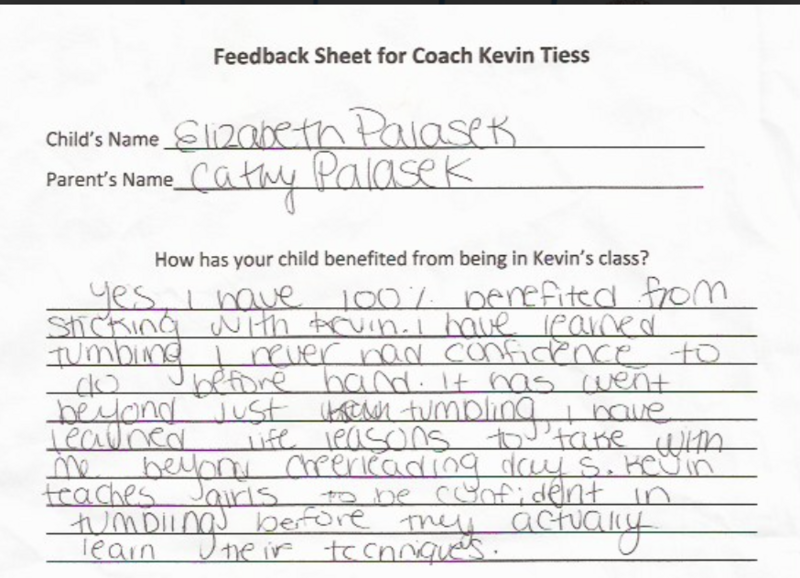 Feedback Sheet for Coach Kevin Tiess
Child's Name Elizabeth Palasek
Parent's Name Cathy Palasek
How has your child benefited from being in Kevin's class?
Yes, I have 100% benefited from
sticking with Kevin. I have learned
tumbling I never had confidence to
do before hand. It has went
beyond just tumbling, I have
learned life leasons to take with
me beyond cheerleading days. Kevin
teaches girls to be confident in
tumbling before they actually
learn their techniques.